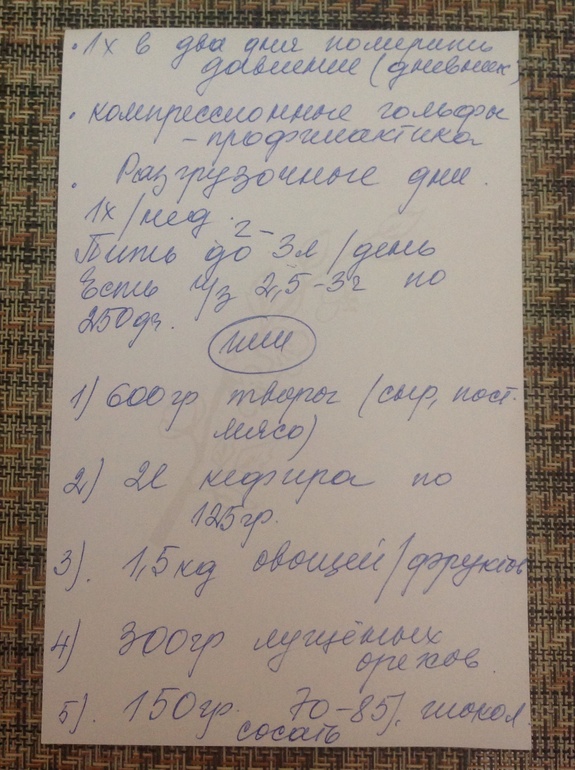 • 1х в два дня померить
давление (дневник)
• компрессионные гольфы
- профилактика
• Разгрузочные дни.
1х/нед.
2-
Пить до 3л/день
Есть ч/з 2,5-3г по
250гр.
или
1) 600гр творог (сыр, пост.
мясо)
2) 2l кефира по
125гр.
3). 1,5кд овощей/фруктов
4) 300гр лущёных
орехов.
5). 150гр. 70-85% шокол.
сосать